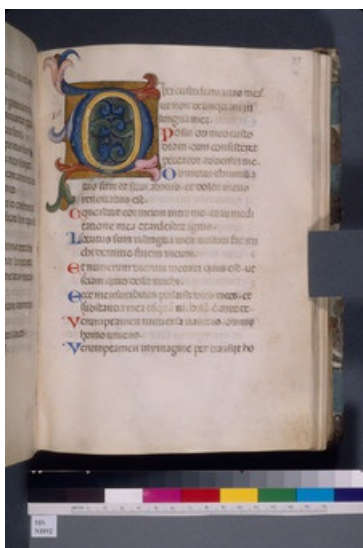 Dixi custodiam uias meas
ut non delinquam in
lingua mea.
Posui ori meo custo
diam cum consisteret
peccator aduersum me.
Obmutui et humilia
tus sum et silui a bonis et dolor meus
renouatus est.
Concaluit cor meum intra me et in medi
tatione mea exardescet ignis.
Locutus sum in lingua mea notum fac mi
chi domine finem meum.
Et numerum dierum meorum quis est ut
sciam quid desit michi.
Ecce mensurabiles posuisti dies meos et
substantia mea ante te.
Verumptamen uniuersa uanitas omnis
homo uiuens.
Verumptamen in imagine pertransit ho
MS